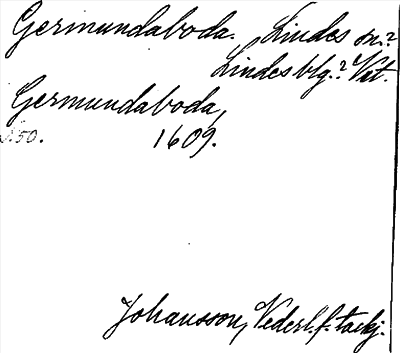 Germundaboda. Lindes sn.?
Lindesblg.? Vstm.
Germundaboda,
s. 50. 1609.
Johansson, Nederl. f. tackj.